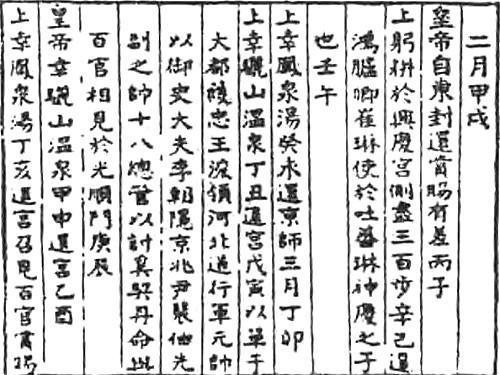 二月甲戌
皇帝自東封還賞賜有差丙子
上躬耕於興慶宮側盡三百步辛巳遣
鴻臚卿崔琳使於吐蕃琳神慶之子
也壬午
上幸鳳泉湯癸未還京師三月丁卯
上幸驪山溫泉丁丑還宮戊寅以單于
大都護忠王浚領河北道行軍元帥
以御史大夫李朝隱京兆尹裴伷先
副之帥十八總管以討奚契丹命
百官相見於光順門庚辰
皇帝幸驪山溫泉甲申還宮乙酉
上幸鳳泉湯丁亥還宮召見百官賞賜